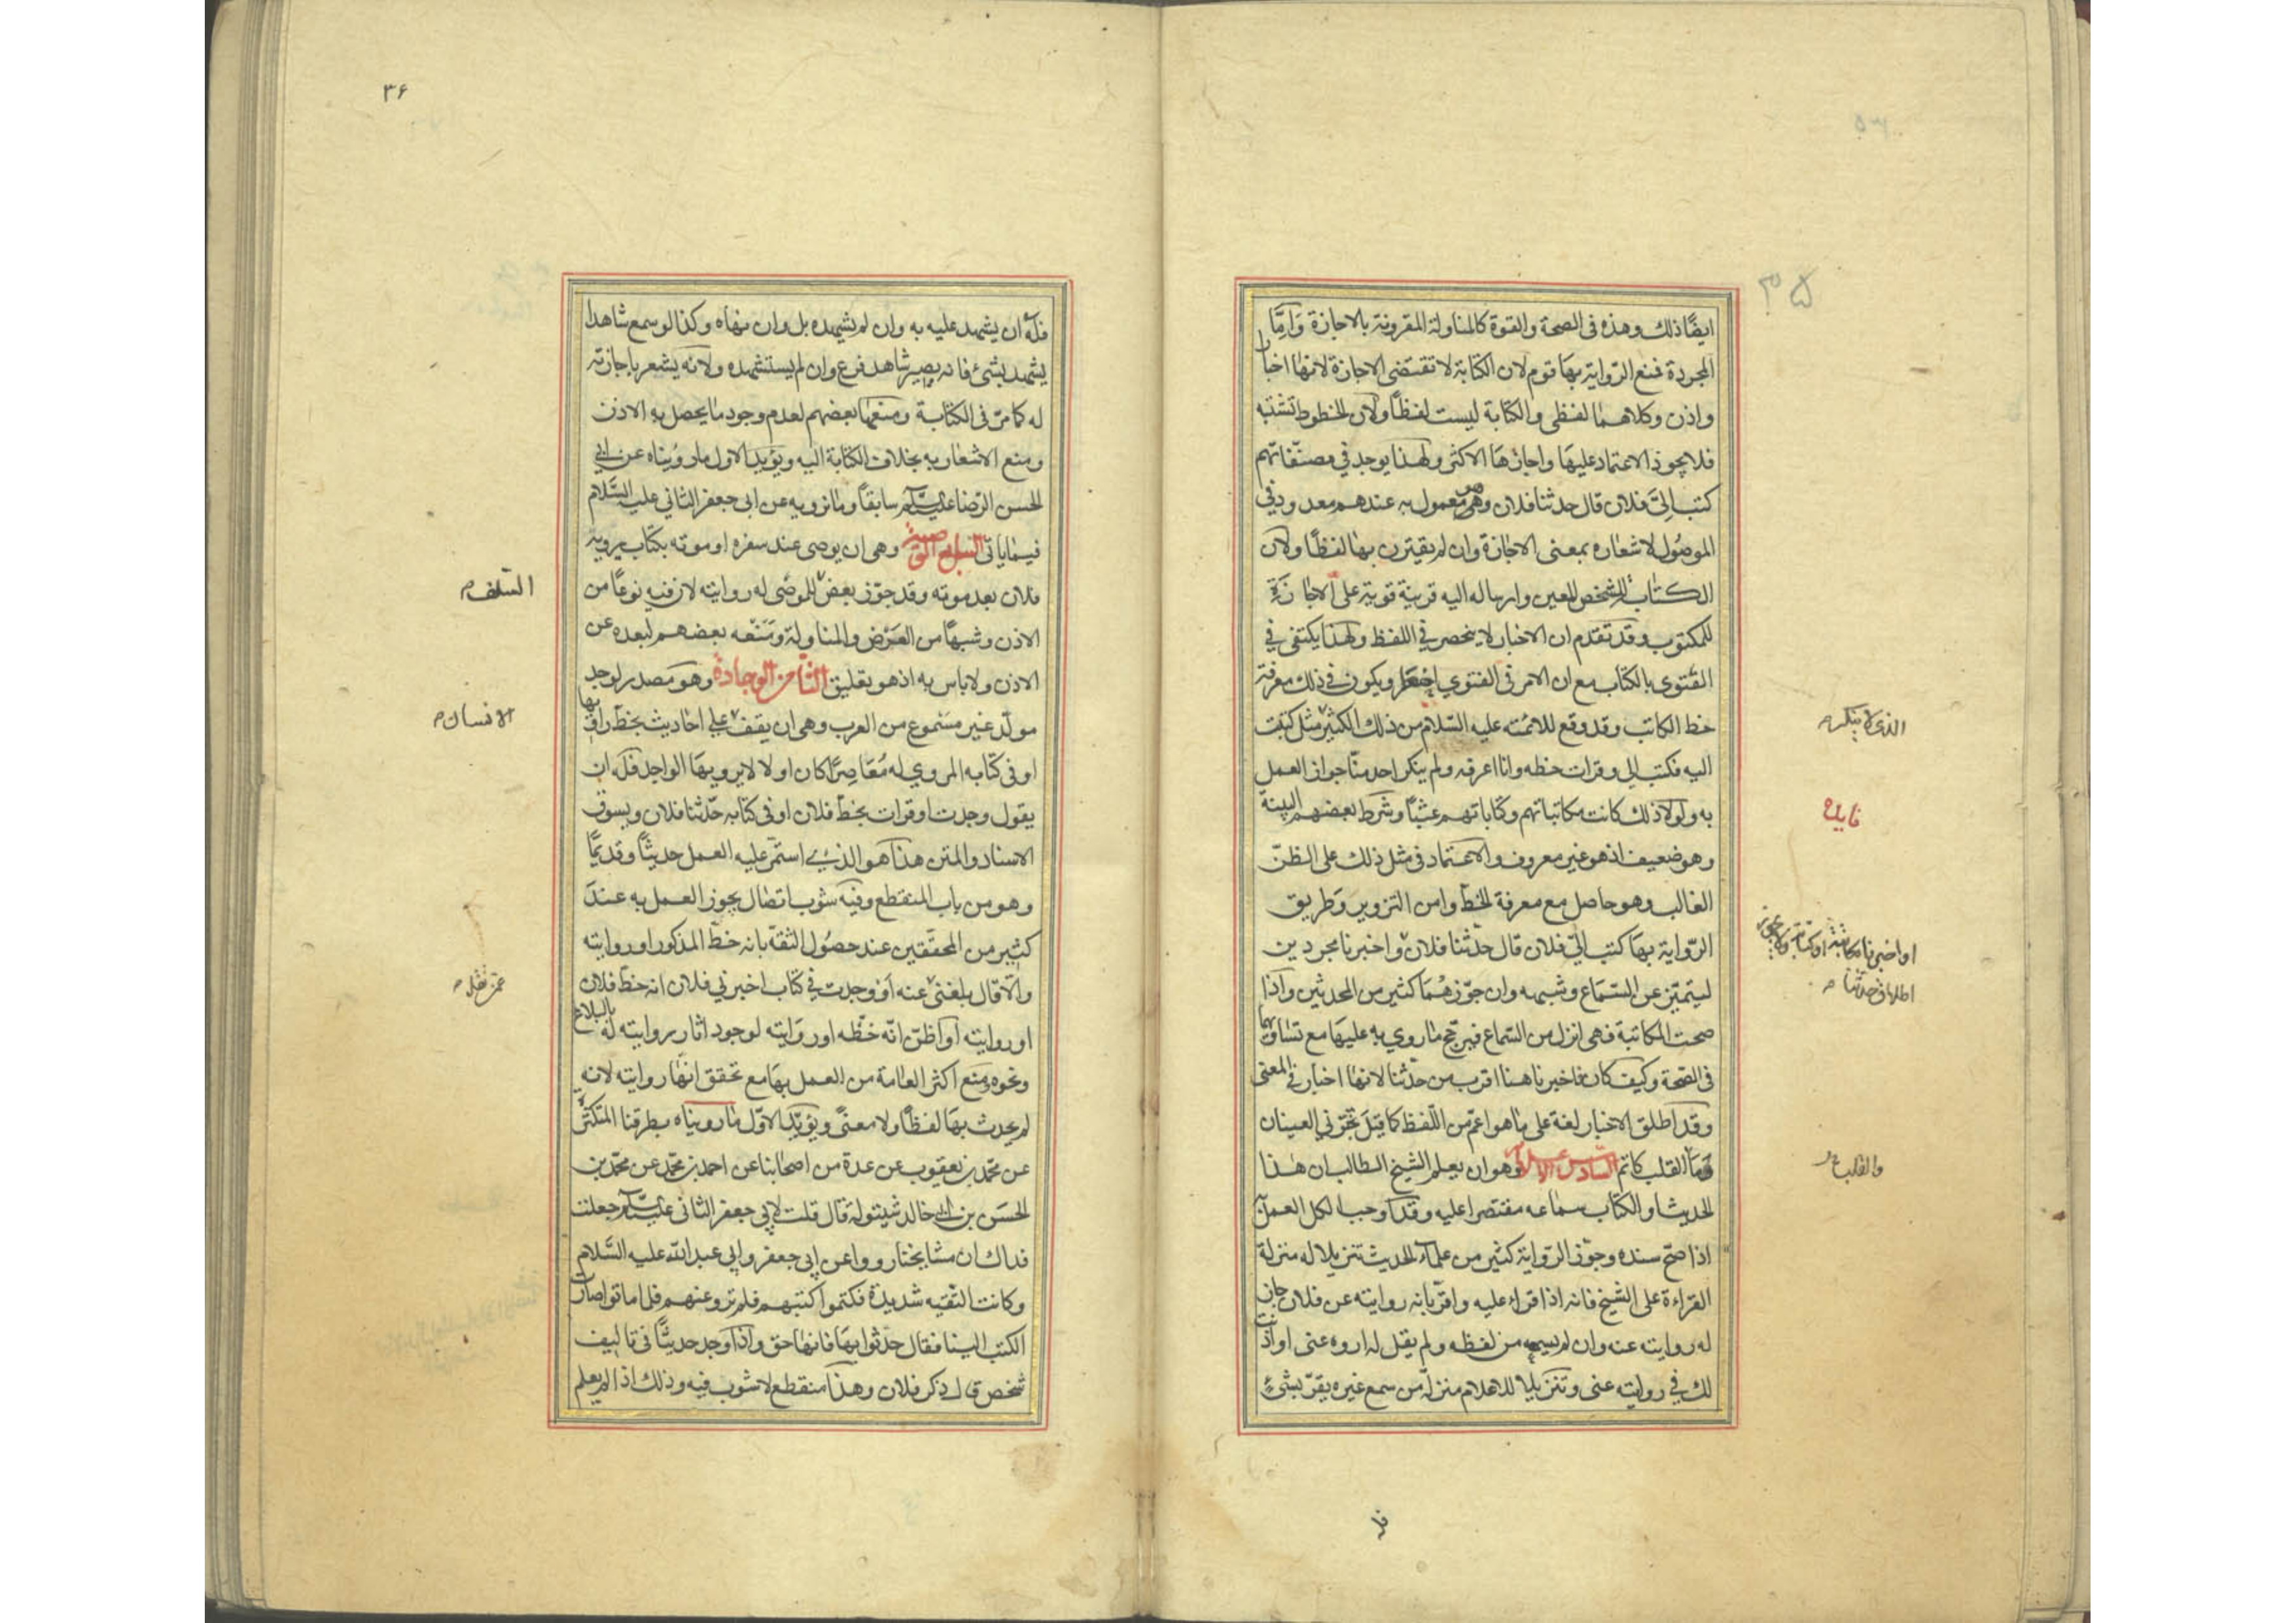 ايضًا ذلك وهذه فى الصحة والقوة كالمناولة المقرونة بالاجازة وَامّا
المجردة فمنع الرّواية بهَا قوم لان الكتابة لا تقتضى الاجازة لانهَا اخبار
واذن وكلاهمَا لفظى والكتابة ليست لفظًا ولان الخطوط تشتبه
فلا يجوز الاعتماد عليهَا واجازهَا الاكثر ولهذا يوجد في مصنّفاتهم
كتب اِلىَّ فلان قال حدثنا فلان وهو معمول به عندهم معدود في
الموصُول لاشعاره بمعنى الاجازة وان لم يقترن بهَا لفظًا ولان
الكتاب للشخص المعين وارساله اليه قرينة قوية على الاجازَةِ
للمكتوب وقد تقدم ان الاخبار لا ينحصر في اللفظ ولهذا يكتفى في
الفتوى بالكتاب مع ان الامر فى الفتوي اخطر ويكون فى ذلك معرفة
خط الكاتب وقد وقع للائمة عليه السّلام من ذلك الكثير مثل كتبت
اليه فكتب الي وقرات خطه وانا اعرفه ولم ينكر احد منّا جواز العمل
به ولولا ذلك كانت مكاتباتهم وكتاباتهم عبثًا وشرط بعضهم البينة
وهو ضعيف اذ هو غير معروف والاعتماد فى مثل ذلك على الظنّ
الغالب وهو حاصل مع معرفة الخطّ وامن التزوير وَطريق
الرّواية بهَا كتب اليّ فلان قال حدّثنا فلان واخبرنا مجردين
ليتميّز عن السّمَاع وشبهه وان جوّزهُمَا كثير من المحدثين وَاذا
صحت المكاتبة فهى انزل من السّماع فيرجّح مٰا روي به عليهَا مع تسَاويهما
فى الصّحة وكيف كان فاخبرنا هنا اقرب من حدّثنا لانهَا اخبار في المعنى
وقد اطلق الاخبار لغة على مٰا هو اعم من اللّفظ كما قِيَلَ تخبّرني العينان
مَا القلب كاتم السّادس الاعلام وهو ان يعلم الشيخ الطالب ان هٰذا
الحديث او الكتاب سمَاعه مقتصرا عليه وقد اوجب الكل العمل
اذا صحّ سنده وجوّز الرّواية كثير من علماء الحديث تنزيلا له منزلة
القراءة على الشيخ فانه اذا قراء عليه واقرّ بانه روايته عن فلان جاز
له روايته عنه وان لم يسمعه من لفظه ولم يقل له اروه عنى او اذنت
لك في روايته عنى وتنزيلا للاعلام منزلة من سمع غيره يقرّ بشئٍ
الذى لا ينكر م
فايده
او اخبرنا مكاتبة او كتابة ولا يجوز
اطلاق حدثنا م
والقلب
فله
٣۵
٣۶
فلَه ان يشهد عليه به وان لم يشهده بل وان نهاه وكذا لو سمع شاهدا
يشهد بشئ فانه يصير شاهد فرع وان لم يستشهده ولانه يشعر باجازته
له كما مرّ فى الكتابة ومنعهَا بعضهم لعدم وجود مٰا يحصل به الاذن
ومنع الاشعار به بخلاف الكتابة اليه ويؤيد الاول ما روَيناه عن ابي
الحسن الرّضا عليه السّلم سابقًا ومٰا نرويه عن ابى جعفر الثانى عليه السَّلام
فيمٰا ياتى السابع الوصية وهى ان يوصى عند سفره او موته بكتاب يرويه
فلان بعد موته وقد جوّز بعض للموصى له روايته لان فيه نوعًا من
الاذن وشبهًا من العَرْض والمناولة وَمَنَعه بعضهم لبعده عن
الاذن ولا باس به اذ هو تعليق الثّامن الوجادة وهو مَصدر لوجد
مولّد غير مَسْموع من العرب وهى ان يقف على احٰاديث بخطّ راويها
او فى كتابه المروي له مُعَاصِرًا كان او لا لا يرويهَا الواجد فلَه ان
يقول وجدت او قرات بخطّ فلان او فى كتابه حدّثنا فلان ويسوق
الاسناد والمتن هذا هو الذي استمرّ عليه العمل حديثًا وقديمًا
وهو من باب المنقطع وفيه شوب اتصٰال يجوز العمل به عندَ
كثير من المحقّقين عند حصُول الثقة بانه خطّ المذكور او روايته
والّا قال بلغنى عنه اَوْ وجدت في كتاب اخبرني فلان انه خطّ فلان
او روايته او اظنّ انّه خطّه او روَايته لوجود اثار روايته له بالبلاغ
ونحوه ومنع اكثر العٰامة من العمل بهَا مع تحقق انّهَا روايته لانه
لم يحدث بهَا لفظًا ولا معنًى ويؤيّد الاوّل مٰا رويناه بطرقنا المتكثّرة
عن محمّد بن يعقوب عن عدة من اصحٰابنا عن احمد بن محمّد عن محمّد بن
الحسَن بن ابي خالد شينولة قال قلت لابي جعفر الثانى عليه السّلم جعلت
فداك ان مشايخنا رووا عن ابى جعفر وابي عبد الله عليه السَّلام
وكانت التقيّه شديدة فكتموا كتبهم فلم ترو عنهم فلما ماتوا صارت
الكتب الينا فقال حدّثوا بهَا فانهٰا حق واذا وجد حديثًا فى تاليف
شخص قال ذكر فلان وهذا منقطع لا شوب فيه وذلك اذا لم يعلم
السّلف م
الانسان م